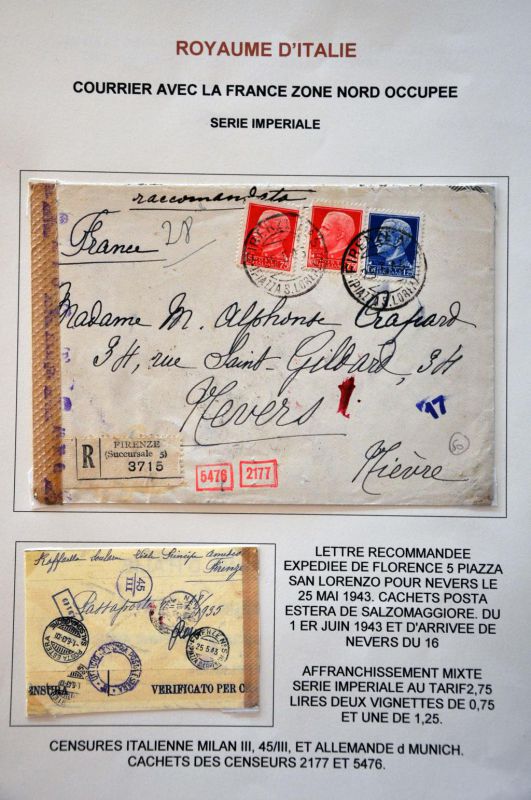 ROYAUME D'ITALIE
COURRIER AVEC LA FRANCE ZONE NORD OCCUPEE
SERIE IMPERIALE
raccomandata
France
28
FIRENZE
(PIAZZA S. LOREN
Madame M. Alphonse Crapard
34, rue Saint-Gildard, 34
Nevers
17
R
FIRENZE
(Succursale 5)
3715
5476 2177
50
Nièvre
45
III
Firenze
25.5.43
POSTA ESTERA
ENSURA
VERIFICATO PER C
LETTRE RECOMMANDEE
EXPEDIEE DE FLORENCE 5 PIAZZA
SAN LORENZO POUR NEVERS LE
25 MAI 1943. CACHETS POSTA
ESTERA DE SALZOMAGGIORE. DU
1 ER JUIN 1943 ET D'ARRIVEE DE
NEVERS DU 16
AFFRANCHISSEMENT MIXTE
SERIE IMPERIALE AU TARIF2,75
LIRES DEUX VIGNETTES DE 0,75
ET UNE DE 1,25.
CENSURES ITALIENNE MILAN III, 45/III, ET ALLEMANDE d MUNICH.
CACHETS DES CENSEURS 2177 ET 5476.